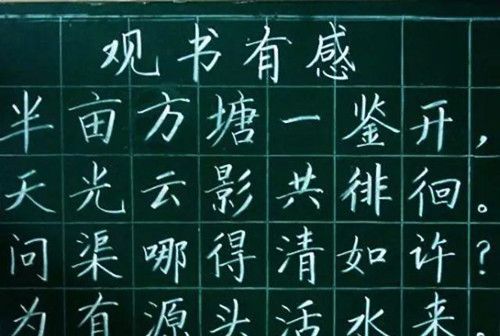 观书有感
半亩方塘一鉴开，
天光云影共徘徊。
问渠哪得清如许？
为有源头活水来